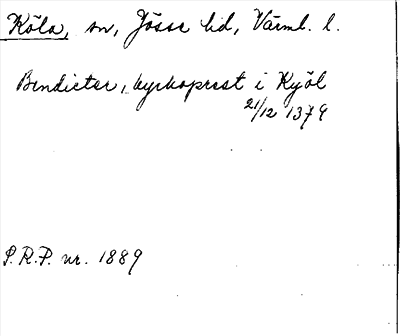 Köla, sn, Jösse hd, Värml. l.
Bendicter, kyrkoprest i Kyöl
21/12 1379
S.R.P. nr. 1889